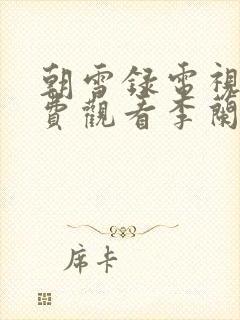 朝雪録電視
費觀看李蘭
席卡